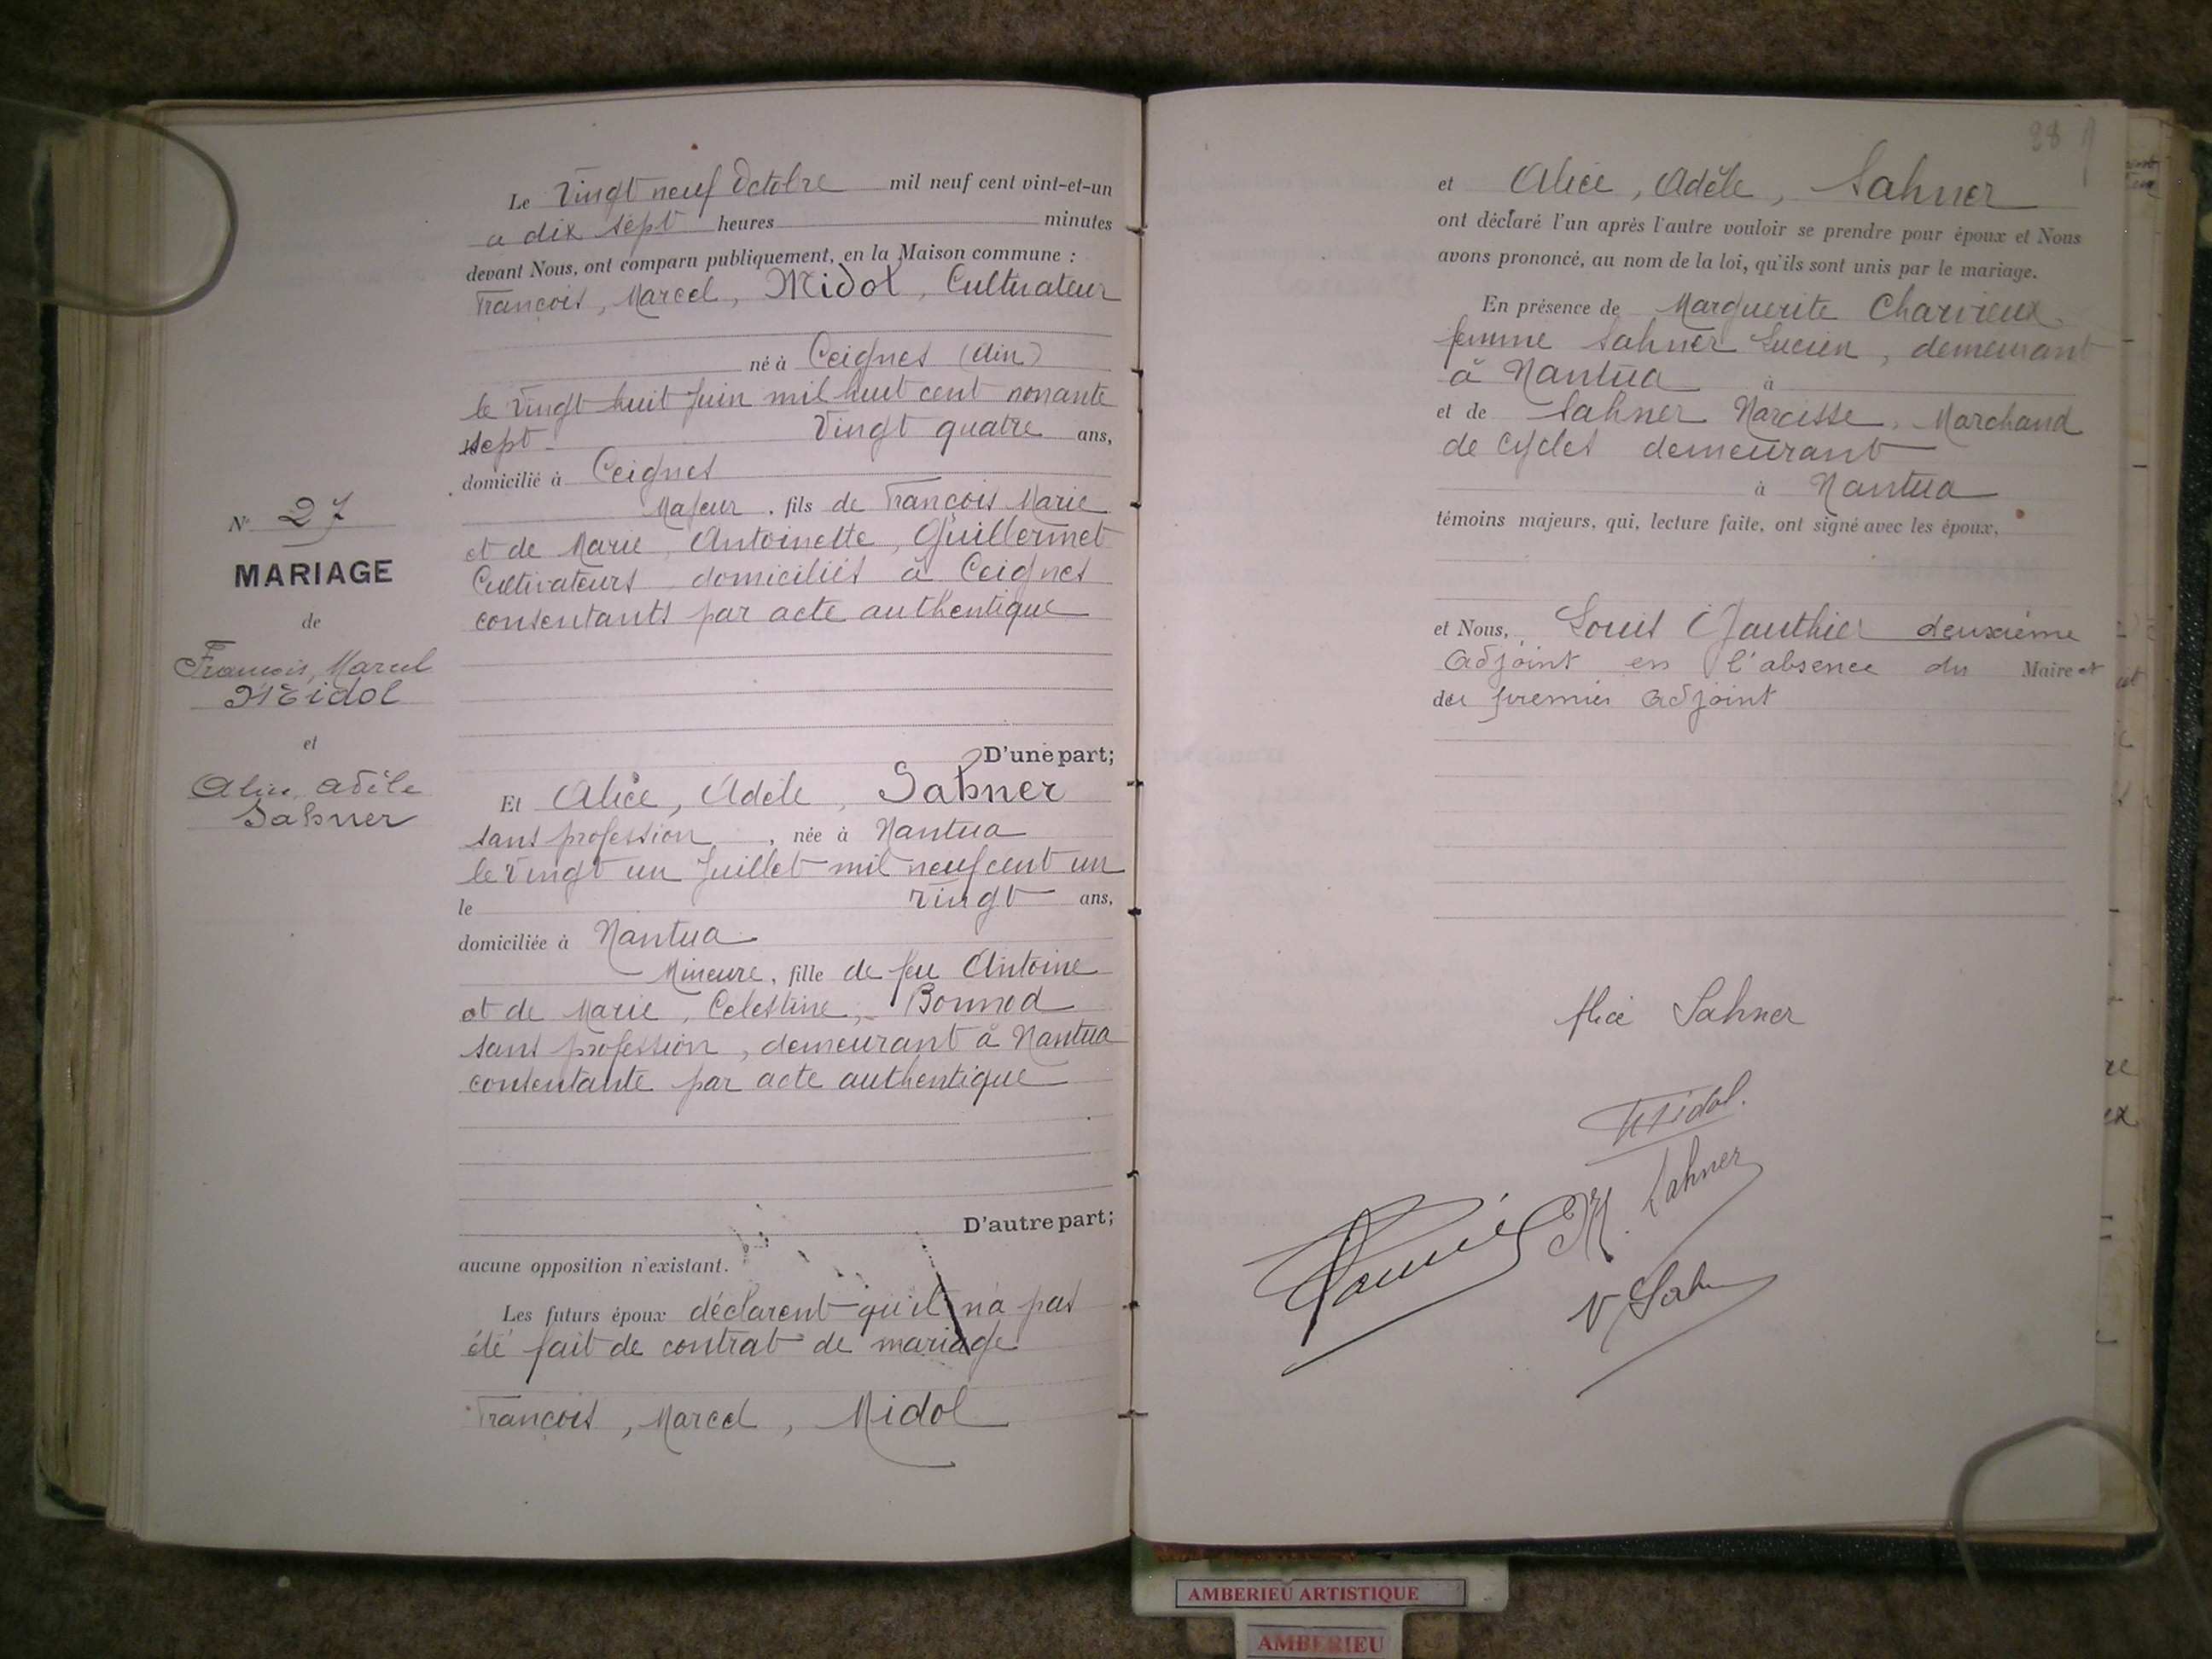 Le Vingt neuf Octobre mil neuf cent vint-et-un
a dix sept heures minutes
devant Nous, ont comparu publiquement, en la Maison commune :
François, Marcel, Midol, Cultivateur
né à Ceignes (Ain)
le vingt huit Juin mil huit cent nonante
sept Vingt quatre ans,
domicilié à Ceignes
Majeur, fils de François Marie
et de Marie, Antoinette, Guillermet
Cultivateurs domiciliés à Ceignes
consentants par acte authentique
D'une part;
N° 27
MARIAGE
de
François, Marcel
Midol
et
Alice Adèle
Sahner
Et Alice, Adèle, Sahner
sans profession, née à Nantua
le vingt un Juillet mil neuf cent un
le vingt ans,
domiciliée à Nantua
Mineure, fille de feu Antoine
et de Marie, Celestine, Bonnod
sans profession, demeurant à Nantua
consentante par acte authentique
D'autre part;
aucune opposition n'existant.
Les futurs époux déclarent qu'il n'a pas
été fait de contrat de mariage
François, Marcel, Midol
38
et Alice, Adèle, Sahner
ont déclaré l'un après l'autre vouloir se prendre pour époux et Nous
avons prononcé, au nom de la loi, qu'ils sont unis par le mariage.
En présence de Marguerite Charvieux
femme Sahner Lucien, demeurant
à Nantua à
et de Sahner Narcisse, Marchand
de Cycles demeurant
à Nantua
témoins majeurs, qui, lecture faite, ont signé avec les époux,
et Nous, Louis Gauthier deuxième
Adjoint en l'absence du Maire et
du premier Adjoint
Alice Sahner
Midol.
M. Sahner
N Sahner
AMBERIEU ARTISTIQUE
AMBERIEU